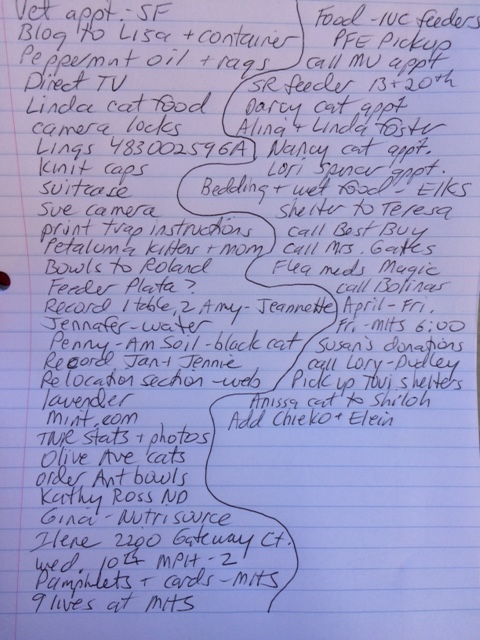 Vet appt.-SF
Blog to Lisa + container
Peppermnt oil + rags
Direct TV
Linda cat food
camera locks
Lings 483002596A
Knit caps
suitcase
Sue camera
print trap instructions
Petaluma kittens + mom
Bowls to Roland
Feeder Plata?
Record 1 table, 2 Amy-Jeannette
Jennafer-water
Penny-Am Soil-black cat
Record Jan + Jennie
Relocation section-web
lavender
Mint.com
TNR stats + photos
Olive Ave cats
order Ant bowls
Kathy Ross ND
Ginai-Nutrisource
Ilene 2290 Gateway Ct.
wed. 10th MPH-2
Pamphlets + cards-MHS
9 lives at MHS
Food-IVC feeders
PFE Pickup
call MU appt
SR feeder 13+20th
Darcy cat appt
Alina + Linda foster
Nancy cat appt.
Lori Spncr appt.
Bedding + wet food-Elks
shelter to Teresa
call Best Buy
call Mrs. Gates
Flea meds Magic
call Bolinas
April-Fri.
Fri-MHS 6:00
Susan's donations
call Lory-Dudley
Pick up shelters
Anissa cat to Shiloh
Add Chieko + Elein